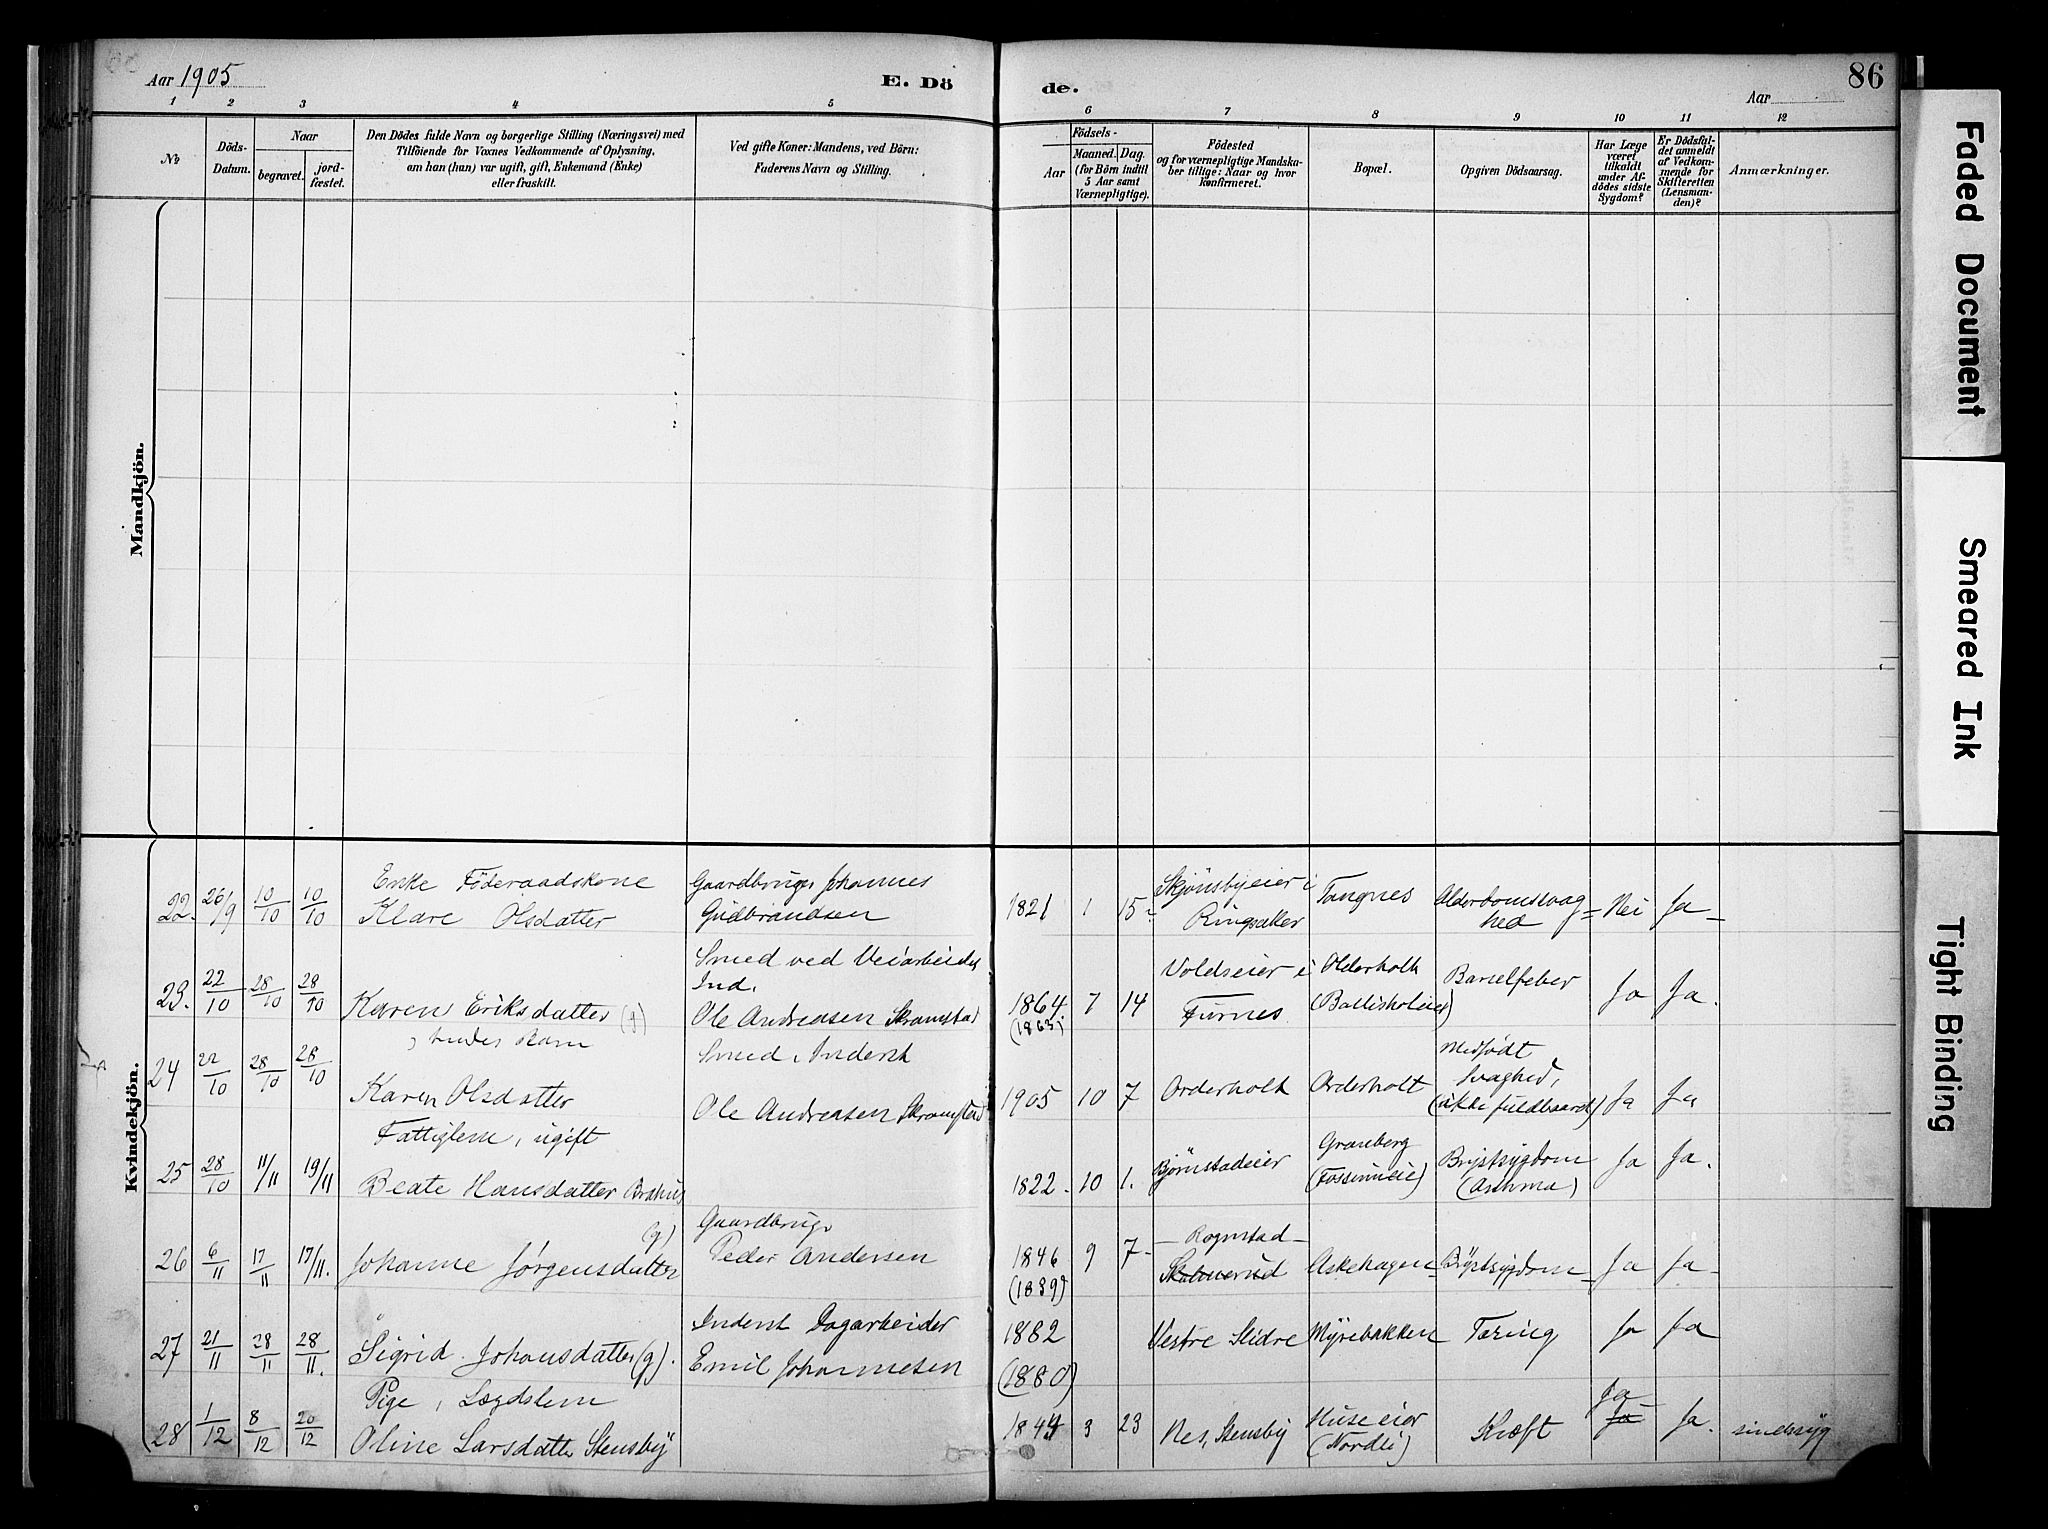 Aar 1905
E. Dö
de.
Aar
86
1 2 3 4 5 6 7 8 9 10 11 12
No
Döds-
Datum.
Naar
begravet.
jord-
fæstet.
Den Dödes fulde Navn og borgerlige Stilling (Næringsvei) med
Tilföiende for Voxnes Vedkommende af Oplysning,
om han (hun) var ugift, gift, Enkemand (Enke)
eller fraskilt.
Ved gifte Koner: Mandens, ved Börn:
Faderens Navn og Stilling.
Födsels-
Aar
Maaned. Dag.
(for Börn indtil
5 Aar samt
Værnepligtige).
Födested
og for værnepligtige Mandska-
ber tillige: Naar og hvor
Konfirmeret.
Bopæl.
Opgiven Dödsaarsag.
Har Læge
været
tilkaldt
under Af-
dödes sidste
Sygdom?
Er Dödsfal-
det anmeldt
af Vedkom-
mende for
Skifteretten
(Lensman-
den)?
Anmærkninger.
Mandkjön.
Kvindekjön.
Enke Föderaadskone Gaardbruger Johannes Skjönsbyeier i
22. 26/9 10/10 10/10 Klare Olsdatter Gudbrandsen 1821 1 15 Ringsaker Tangnes Alderdomssvag=hed Nei Ja
Smed ved Veiarbeidet Voldseier i
Ind.
23. 22/10 28/10 28/10 Karen Eriksdatter (g) Ole Andreasen Skramstad 1864 (1863) 7 14 Furnes Olderholt (Ballisholeie) Barselfeber Ja Ja.
, hendes Barn Smed, Inderst Medfödt
24 22/10 28/10 28/10 Karen Olsdatter Ole Andreasen Skramstad 1905 10 7 Orderholt Orderholt Svaghed, (ikke fuldbaaret) Ja Ja
Fattiglem, ugift
25 28/10 11/11 19/11 Beate Hansdatter 1822 10 1. Björnstadeier Granberg Brystsygdom (Asthma) Ja Ja.
(g) Gaardbruger Rognstad
26 6/11 17/11 17/11. Johanne Jørgensdatter Peder Andersen 1846 (1839) 9 7 Askehagen Brystsygdom Ja Ja
Inderst Dagarbeider
27 21/11 28/11 28/11. Sigrid Johansdatter (g). Emil Johannesen 1882 (1880) Vestre Slidre Myrebakken Tæring Ja Ja
Pige, Lægdslem
28 1/12 8/12 20/12 Oline Larsdatter Stensby 1844 3 23 Nes, Stensby Huseeier (Nordli) Kræft Ja Ja Ja. sindssyg
Faded Document
Smeared Ink
Tight Binding